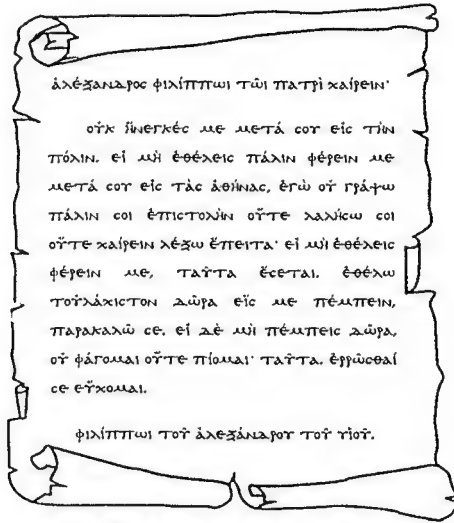 ἀλέξανδρος φιλίππωι τῶι πατρὶ χαίρειν·
οὐκ ἤνεγκές με μετά σου εἰς τὴν
πόλιν. εἰ μὴ ἐθέλεις πάλιν φέρειν με
μετά σου εἰς τὰς ἀθήνας, ἐγὼ οὐ γράψω
πάλιν σοι ἐπιστολὴν οὔτε λαλήσω σοι
οὔτε χαίρειν λέξω ἔπειτα· εἰ μὴ ἐθέλεις
φέρειν με, ταῦτα ἔσεται. ἐθέλω
τοὐλάχιστον δῶρα εἴς με πέμπειν,
παρακαλῶ σε. εἰ δὲ μὴ πέμπεις δῶρα,
οὐ φάγομαι οὔτε πίομαι· ταῦτα. ἐρρῶσθαί
σε εὔχομαι.
φιλίππωι τοῦ ἀλεξάνδρου τοῦ υἱοῦ.